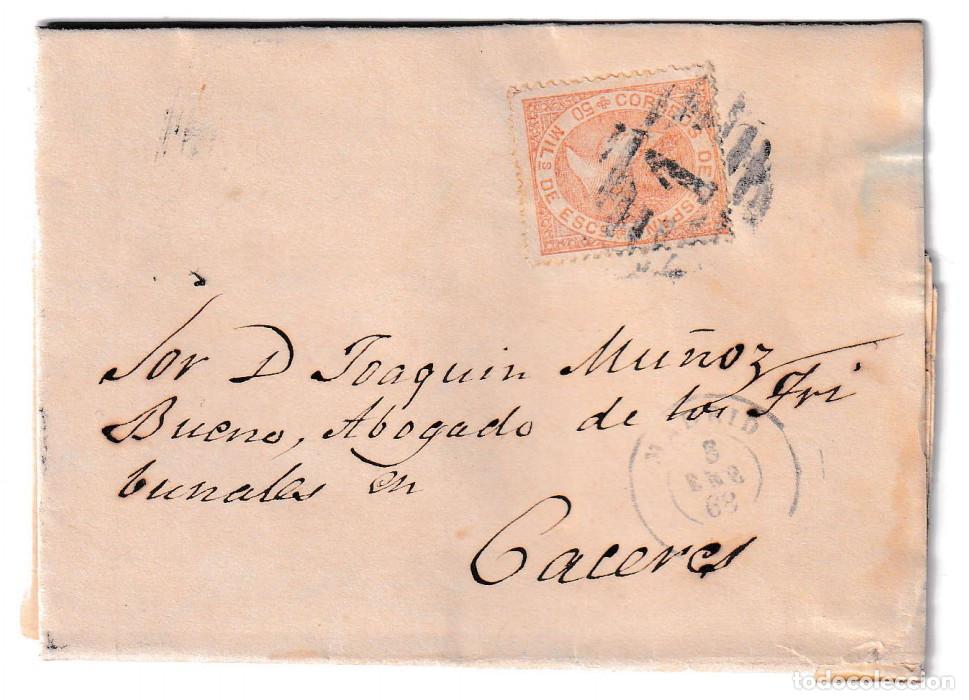 CORREOS DE ESPAÑA
50 MILs DE ESCo
1
Sor D Joaquin Muñoz
Bueno, Abogado de los Tri
bunales en
Caceres
MADRID
ENE
68
todocoleccion
todocoleccion.net